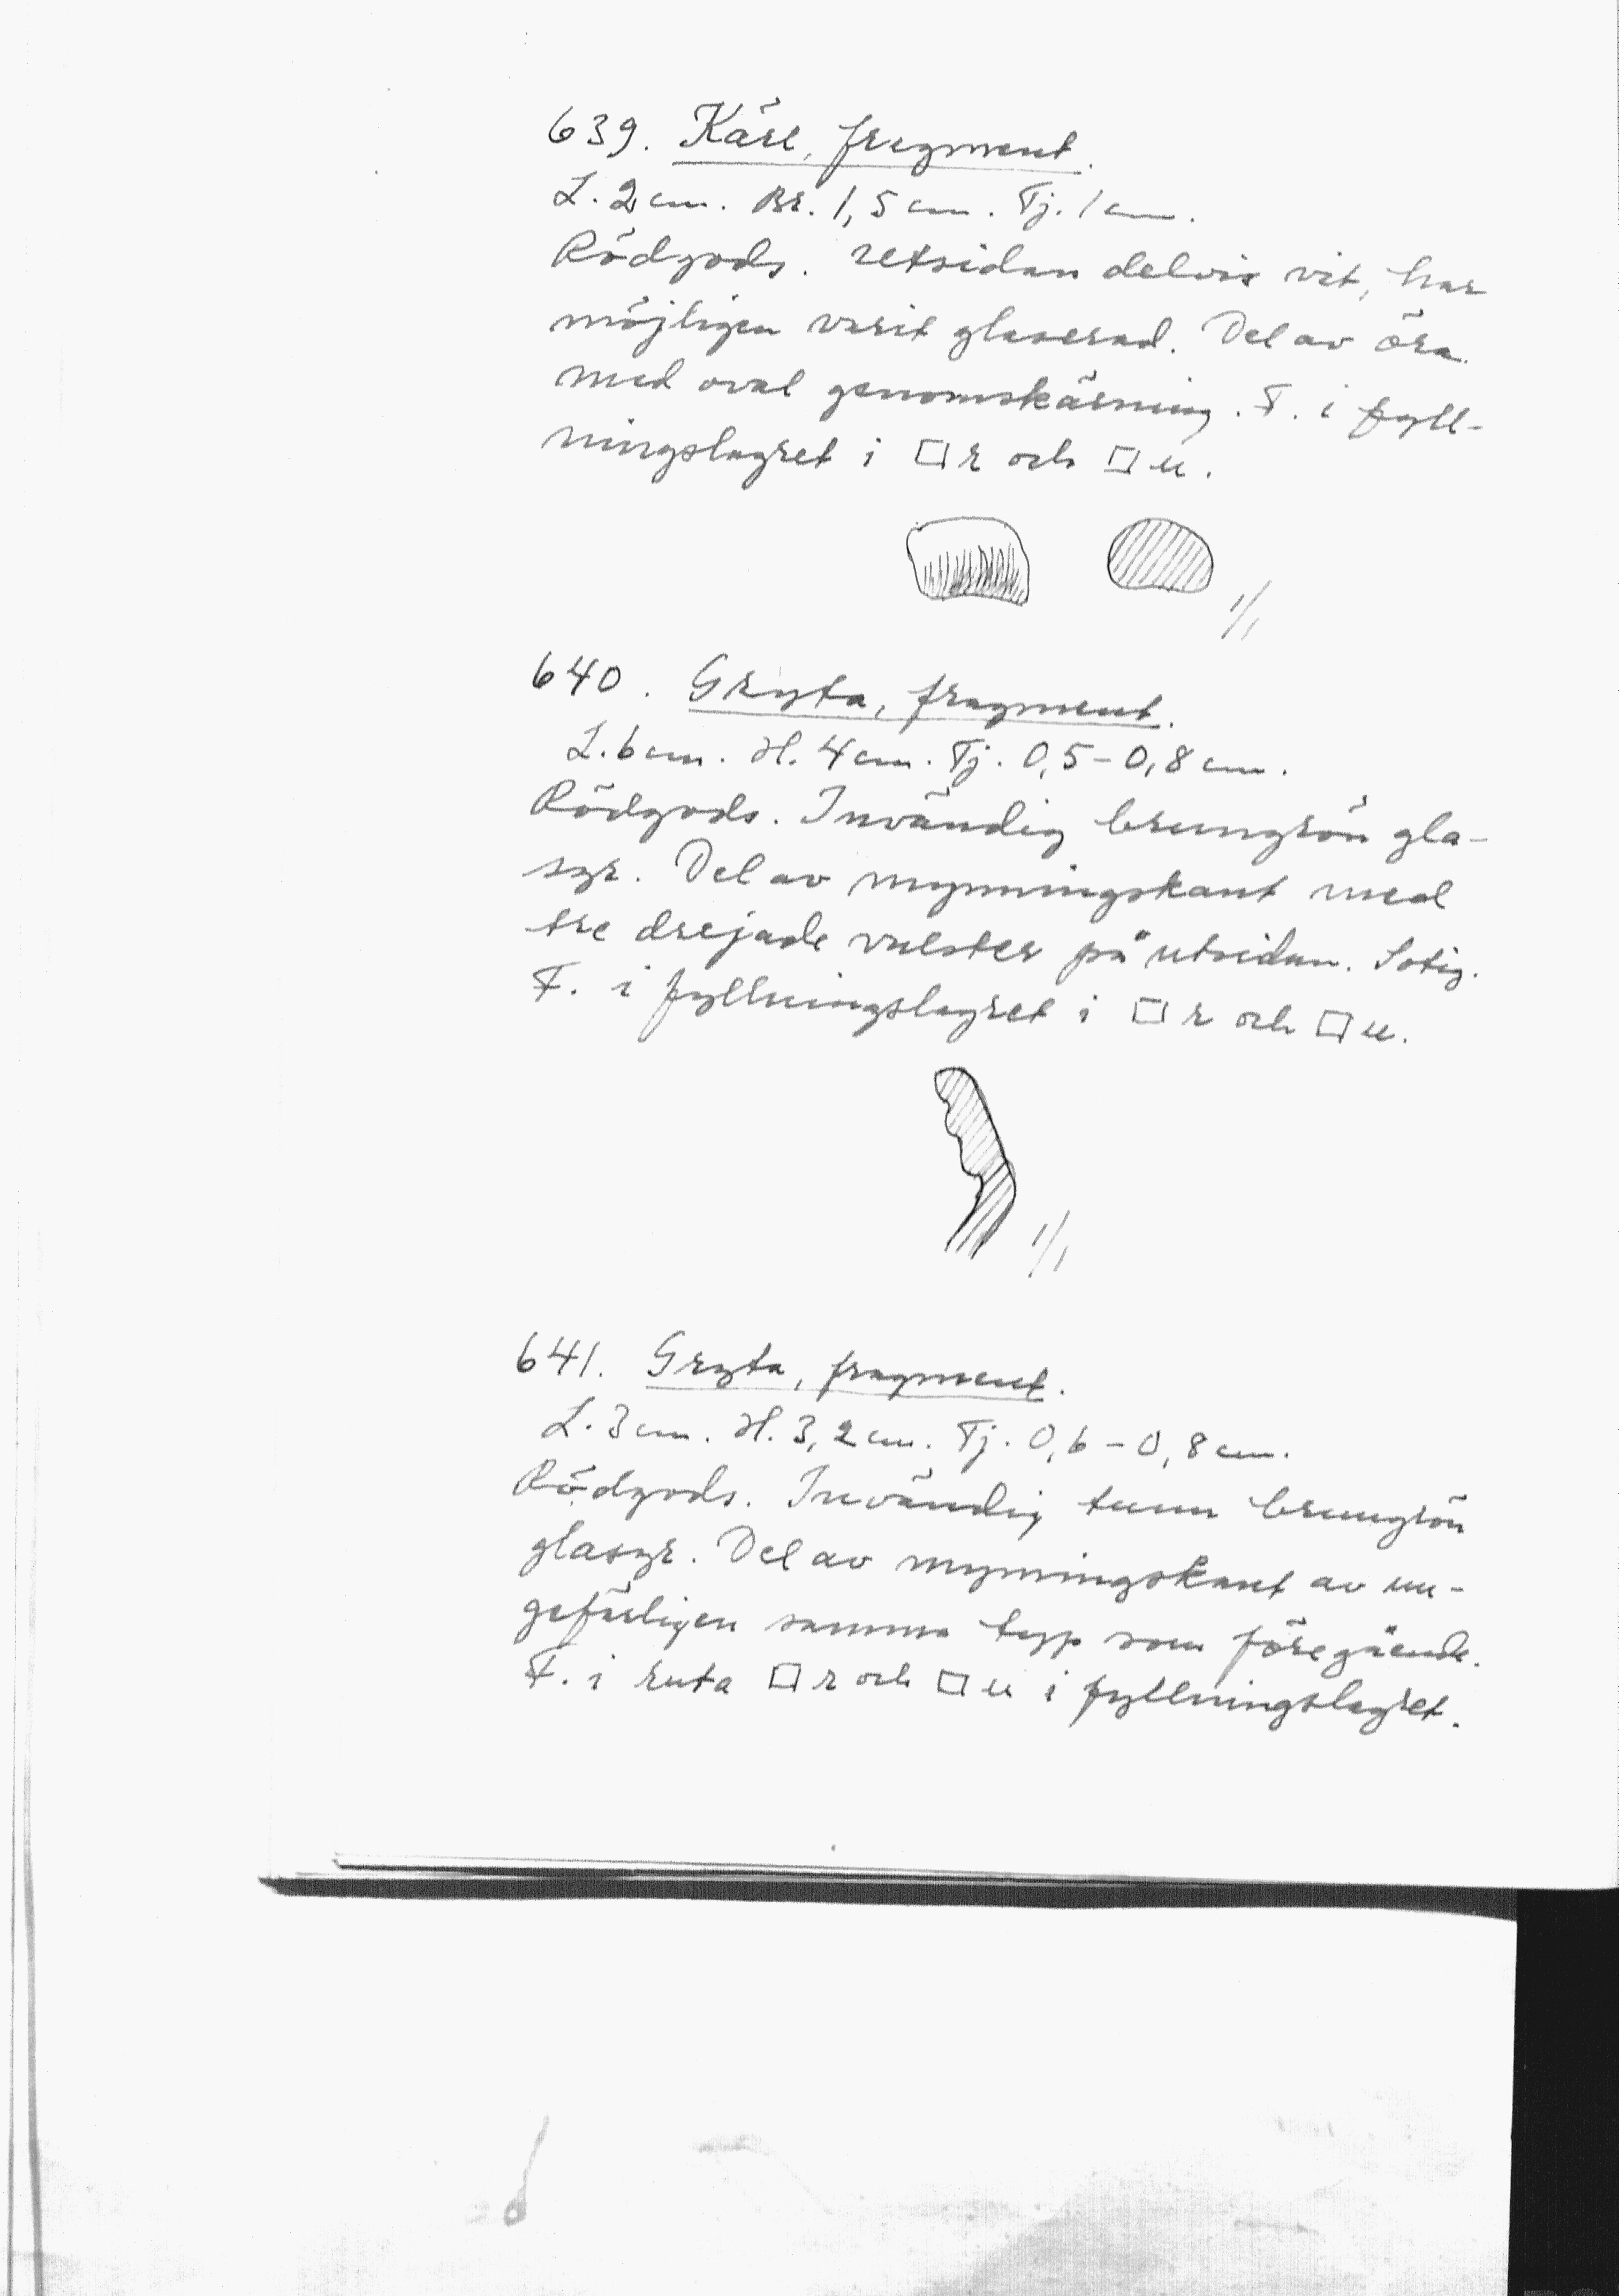 639. Kärl, fragment.
L. 2 cm. Br. 1,5 cm. Tj. 1 cm.
Rödgods. Utsidan delvis vit, har
möjligen varit glaserad. Del av öra
med oval genomskärning. F. i fyll-
ningslagret i □ r och □ u.
1/1
640. Gryta, fragment.
L. 6 cm. H. 4 cm. Tj. 0,5-0,8 cm.
Rödgods. Invändig brungrön gla-
syr. Del av mynningskant med
tre drejade vulster på utsidan. Sotig.
F. i fyllningslagret i □ r och □ u.
1/1
641. Gryta, fragment.
L. 3 cm. H. 3,2 cm. Tj. 0,6-0,8 cm.
Rödgods. Invändig tunn brungrön
glasyr. Del av mynningskant av un-
gefärligen samma typ som föregående.
F. i ruta □ r och □ u i fyllningslagret.